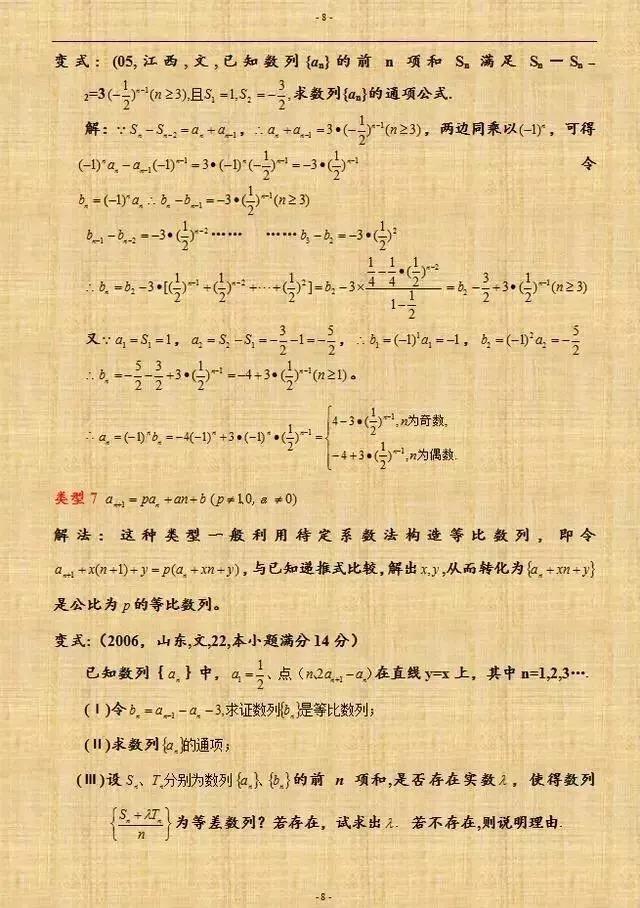 - 8 -
变式:(05,江西,文,已知数列{aₙ}的前 n 项和 Sₙ 满足 Sₙ－Sₙ₋
₂=3(-1/2)ⁿ⁻¹(n≥3),且S₁=1,S₂=-3/2,求数列{aₙ}的通项公式.
解:∵Sₙ-Sₙ₋₂=aₙ+aₙ₋₁,∴aₙ+aₙ₋₁=3•(-1/2)ⁿ⁻¹(n≥3),两边同乘以(-1)ⁿ,可得
(-1)ⁿaₙ-aₙ₋₁(-1)ⁿ⁻¹=3•(-1)ⁿ(-1/2)ⁿ⁻¹=-3•(1/2)ⁿ⁻¹ 令
bₙ=(-1)ⁿaₙ∴bₙ-bₙ₋₁=-3•(1/2)ⁿ⁻¹(n≥3)
bₙ₋₁-bₙ₋₂=-3•(1/2)ⁿ⁻²…… ……b₃-b₂=-3•(1/2)²
∴bₙ=b₂-3•[(1/2)ⁿ⁻¹+(1/2)ⁿ⁻²+⋯+(1/2)²]=b₂-3×(1/4-1/4•(1/2)ⁿ⁻²)/(1-1/2)=b₂-3/2+3•(1/2)ⁿ⁻¹(n≥3)
又∵a₁=S₁=1,a₂=S₂-S₁=-3/2-1=-5/2,∴b₁=(-1)¹a₁=-1,b₂=(-1)²a₂=-5/2
∴bₙ=-5/2-3/2+3•(1/2)ⁿ⁻¹=-4+3•(1/2)ⁿ⁻¹(n≥1)。
∴aₙ=(-1)ⁿbₙ=-4(-1)ⁿ+3•(-1)ⁿ•(1/2)ⁿ⁻¹={4-3•(1/2)ⁿ⁻¹,n为奇数,
-4+3•(1/2)ⁿ⁻¹,n为偶数.
类型7 aₙ₊₁=paₙ+an+b(p≠1,0,a≠0)
解法:这种类型一般利用待定系数法构造等比数列,即令
aₙ₊₁+x(n+1)+y=p(aₙ+xn+y),与已知递推式比较,解出x,y,从而转化为{aₙ+xn+y}
是公比为p的等比数列。
变式:(2006,山东,文,22,本小题满分14分)
已知数列{aₙ}中,a₁=1/2、点(n,2aₙ₊₁-aₙ)在直线y=x上,其中n=1,2,3….
(Ⅰ)令bₙ=aₙ₋₁-aₙ-3,求证数列{bₙ}是等比数列;
(Ⅱ)求数列{aₙ}的通项;
(Ⅲ)设Sₙ、Tₙ分别为数列{aₙ}、{bₙ}的前 n 项和,是否存在实数λ,使得数列
{(Sₙ+λTₙ)/n}为等差数列?若存在,试求出λ.若不存在,则说明理由.
- 8 -